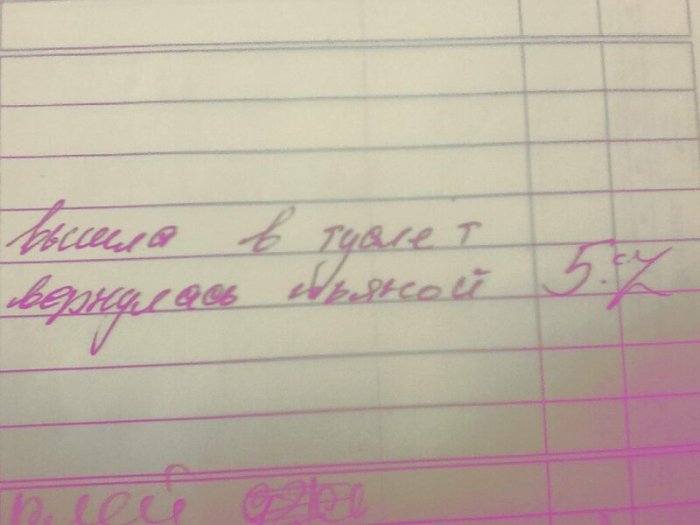 вышла в туалет
вернулась пьяной 5